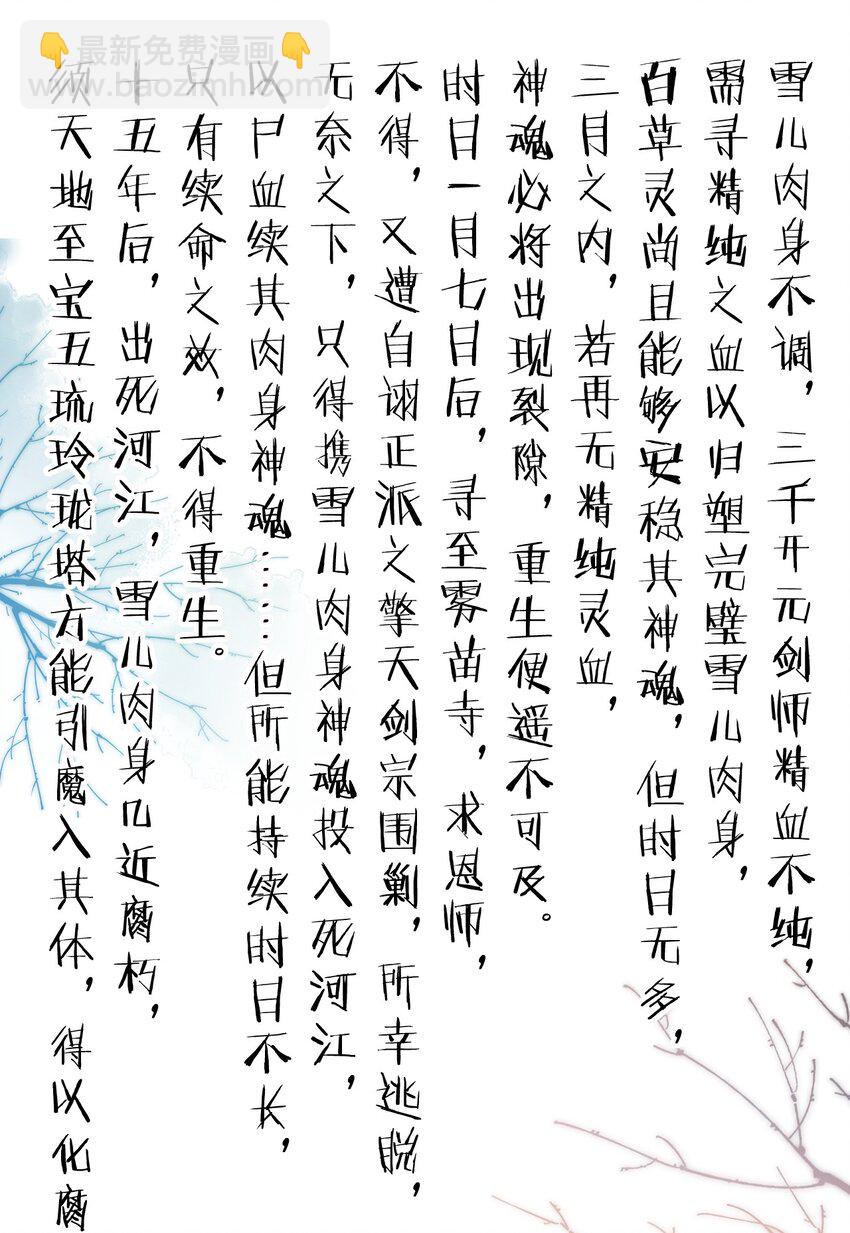 雪儿肉身不调，三千开元剑师精血不纯，
需寻精纯之血以归塑完璧雪儿肉身，
百草灵尚且能够安稳其神魂，但时日无多，
三月之内，若再无精纯灵血，
神魂必将出现裂隙，重生便遥不可及。
时日一月七日后，寻至雾苗寺，求恩师，
不得，又遭自诩正派之擎天剑宗围剿，所幸逃脱，
无奈之下，只得携雪儿肉身神魂投入死河江，
以尸血续其肉身神魂……但所能持续时日不长，
只有续命之效，不得重生。
十五年后，出死河江，雪儿肉身几近腐朽，
须天地至宝五琉玲珑塔方能引魔入其体，得以化腐
👇最新免费漫画👇
www.baozimh.com